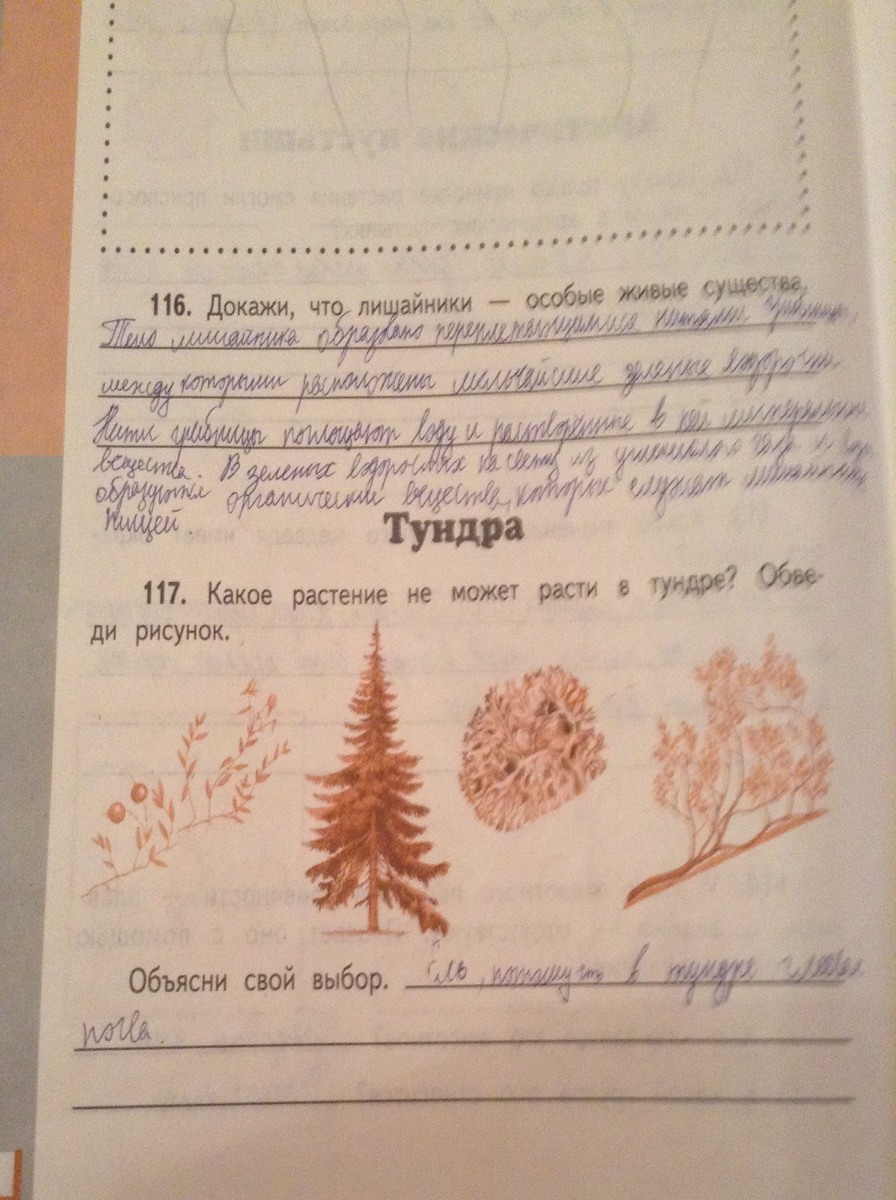 116. Докажи, что лишайники — особые живые существа.
Тело лишайника образовано переплетающимися нитями грибницы,
между которыми расположены мельчайшие зеленые водоросли.
Нити грибницы поглощают воду и растворённые в ней минеральные
вещества. В зеленых водорослях на свету из углекислого газа и воды
образуются органические вещества, которые служат лишайникам
пищей
Тундра
117. Какое растение не может расти в тундре? Обве-
ди рисунок.
Объясни свой выбор. Ель, потому что в тундре
почва.